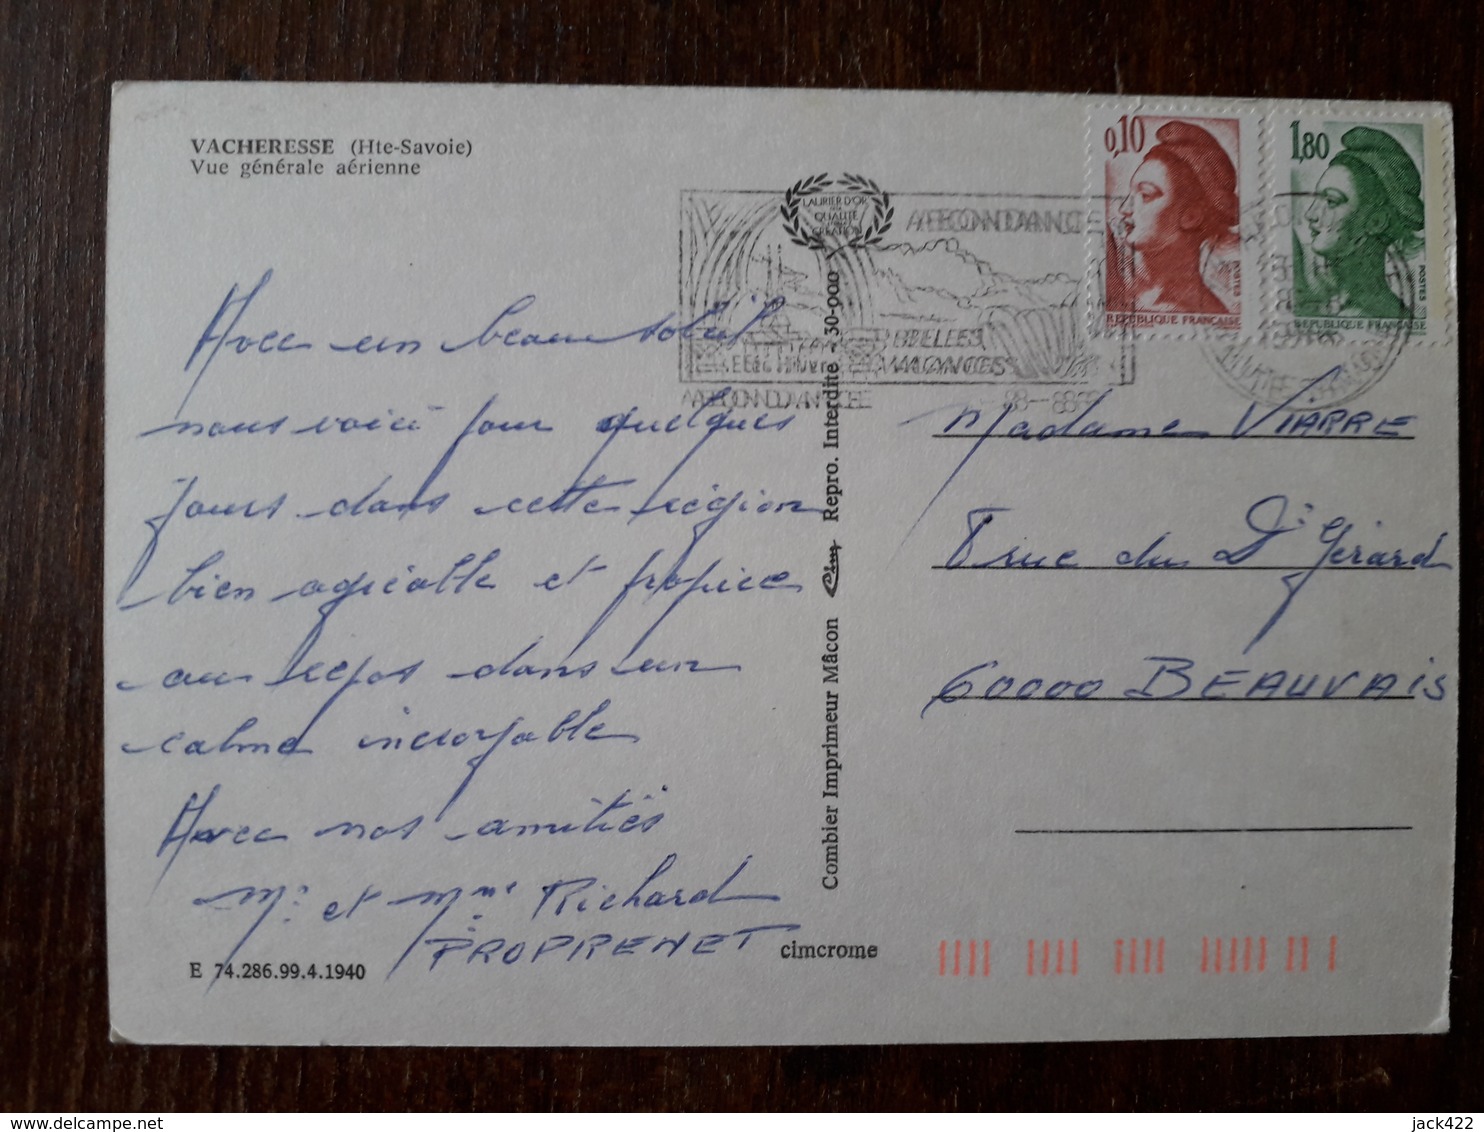 VACHERESSE (Hte-Savoie)
Vue générale aérienne
Avec un beau soleil
nous voici pour quelques
jours dans cette région
bien agréable et propice
au repos dans un
calme incroyable
Avec nos amitiés
Mr et Mme Richard
PROPRENET
E 74.286.99.4.1940
cimcrome
Combier Imprimeur Mâcon Cim Repro. Interdite - 30-000
LAURIER D'OR
QUALITÉ
CRÉATION
ABONDANCE
BELLES
VACANCES
ABONDANCE
0,10
POSTES
REPUBLIQUE FRANÇAISE
1,80
POSTES
REPUBLIQUE FRANÇAISE
Madame VIARRE
8 rue du Dr Gérard
60000 BEAUVAIS
jack422